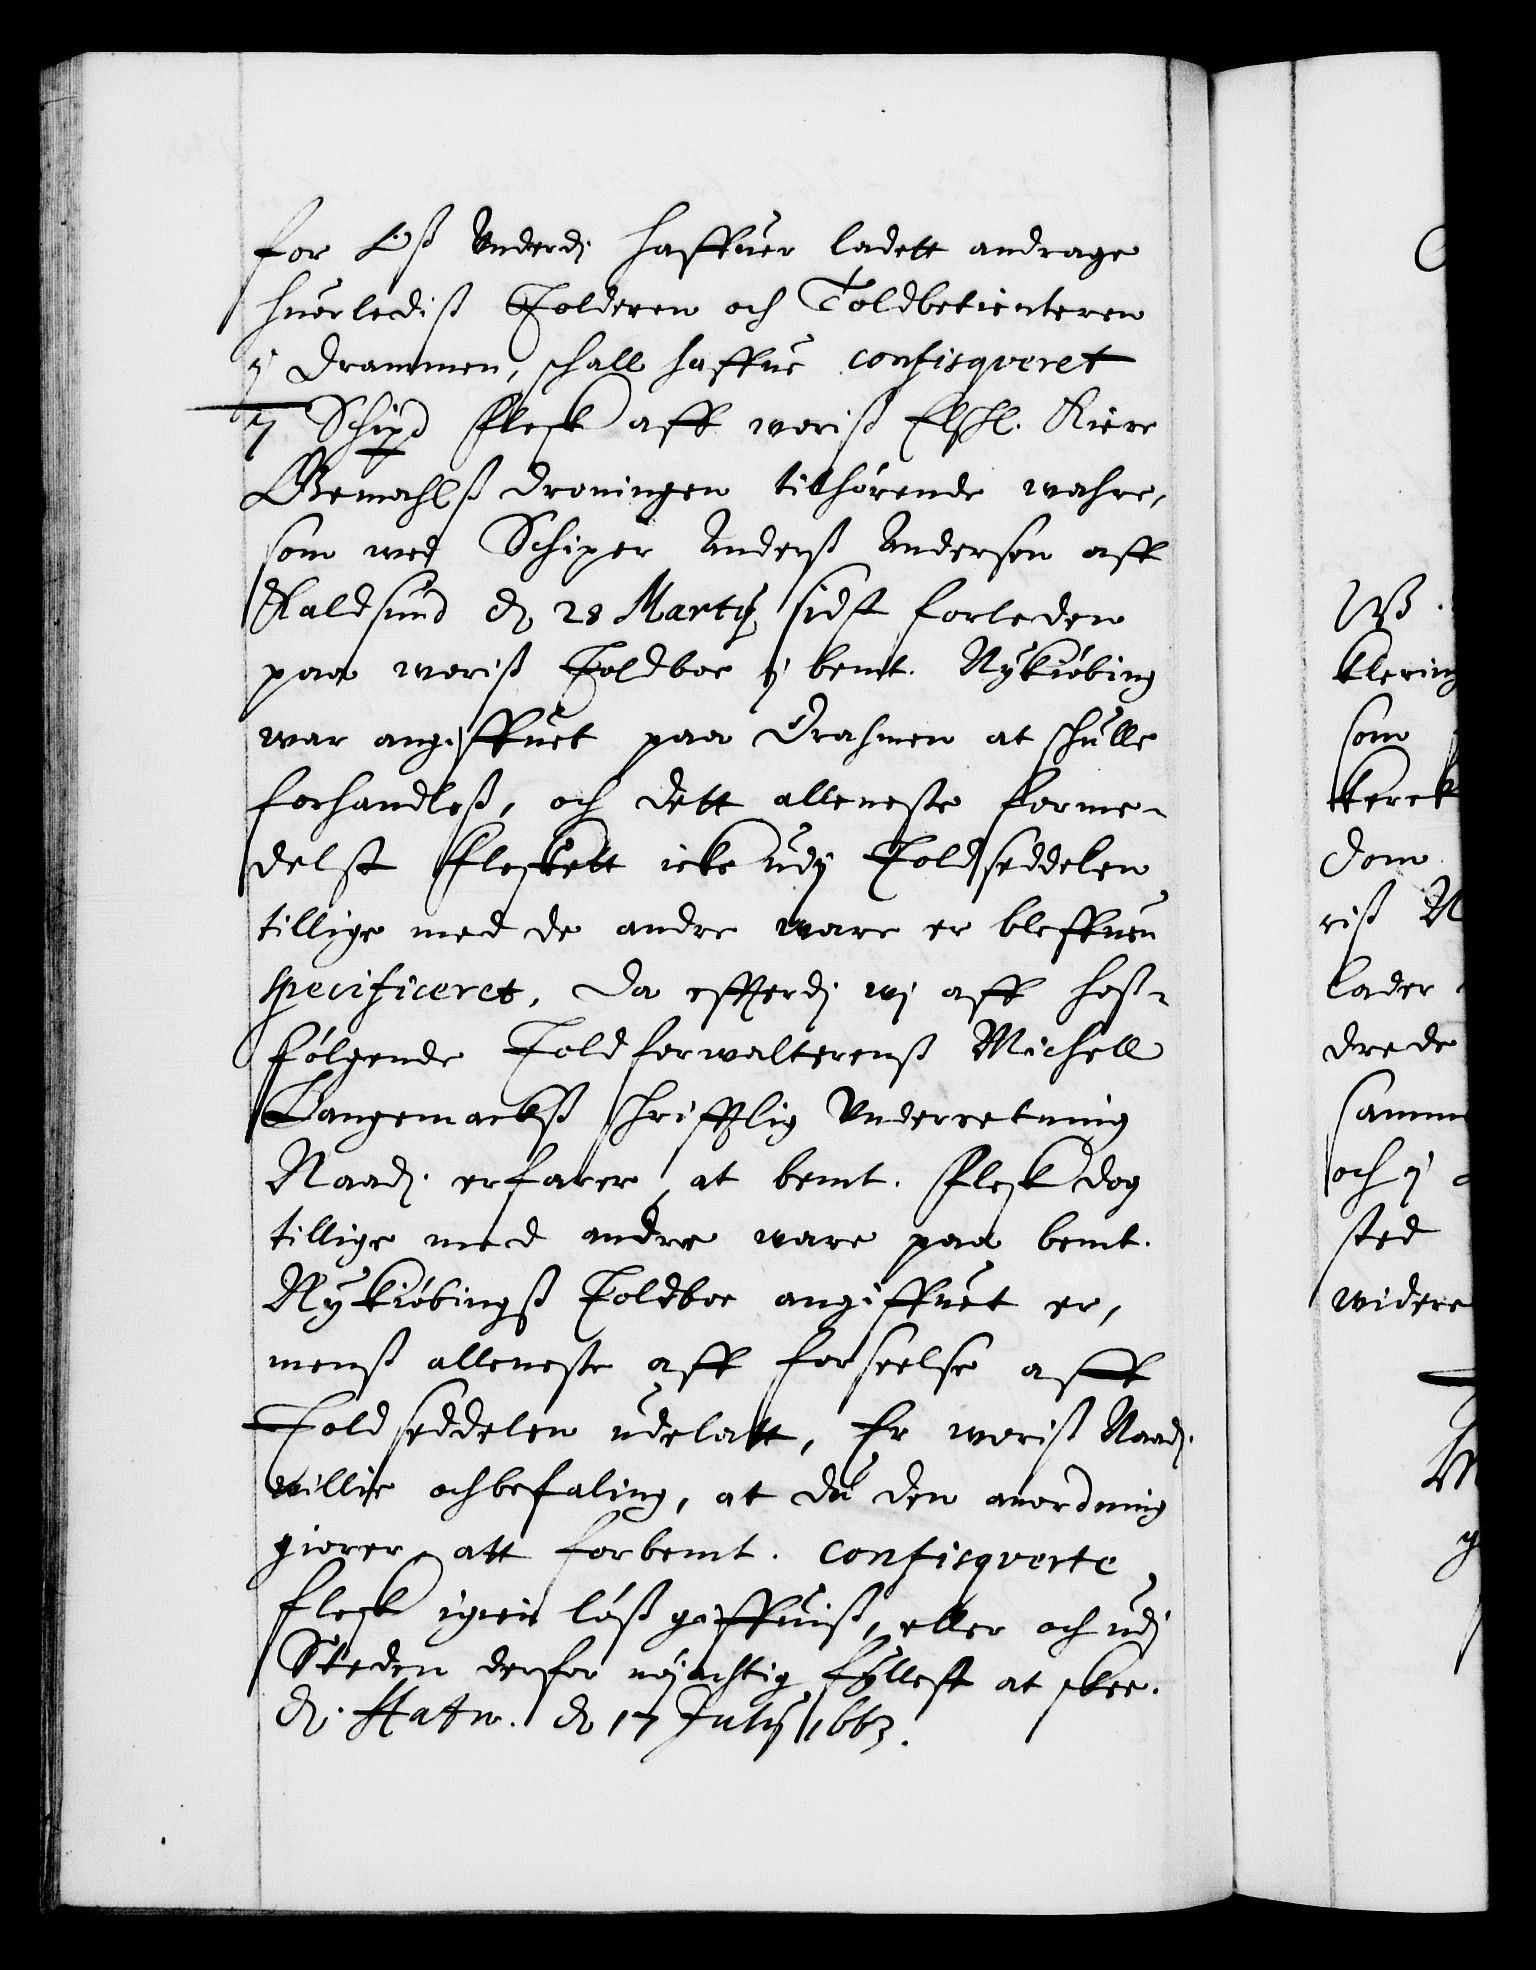 for Oß Underdj haffuer ladett andrage
huorlediß Tolderen och Toldbetienteren
ÿ Drammen, schall haffue confisqveret
7 Schipd Flesk aff woriß Elskl. Kiere
Gemahlß Droningen tilhörende wahre,
som med Schiper Anderß Andersen aff
Raldsund dn 28 Martÿ sidst forleden
paa woriß Toldboe ÿ bemt. Nykiöbing
war angiffuet paa Drahmen at schulle
forhandleß, och dett alleneste forme-
delst Fleskett icke udÿ Toldseddelen
tillige med de andre ware er bleffuen
specificeret, Da effterdj wj aff hoß-
fölgende Toldforwalterenß Michell
Langemackß schrifftlig Underretning
Naadj. erfarer, at bemt. Flesk dog
tillige med andre ware paa bemt.
Nykiöbingß Toldboe angiffuet er,
menß alleneste aff forseelse aff
Toldseddelen udelatt, Er woriß Naadj.
willie och befaling, at du den anordning
giorer att forbemt. confisqverte
flesk igien löß giffuiß, eller och udj
Steden derfor nöjachtig fyllest at skee.
D. Hafn. dn 17 Julÿ 1663.
Wß
klering
som
kerck
dom
riß N
lader
drede
samme
och ÿ
sted
widere